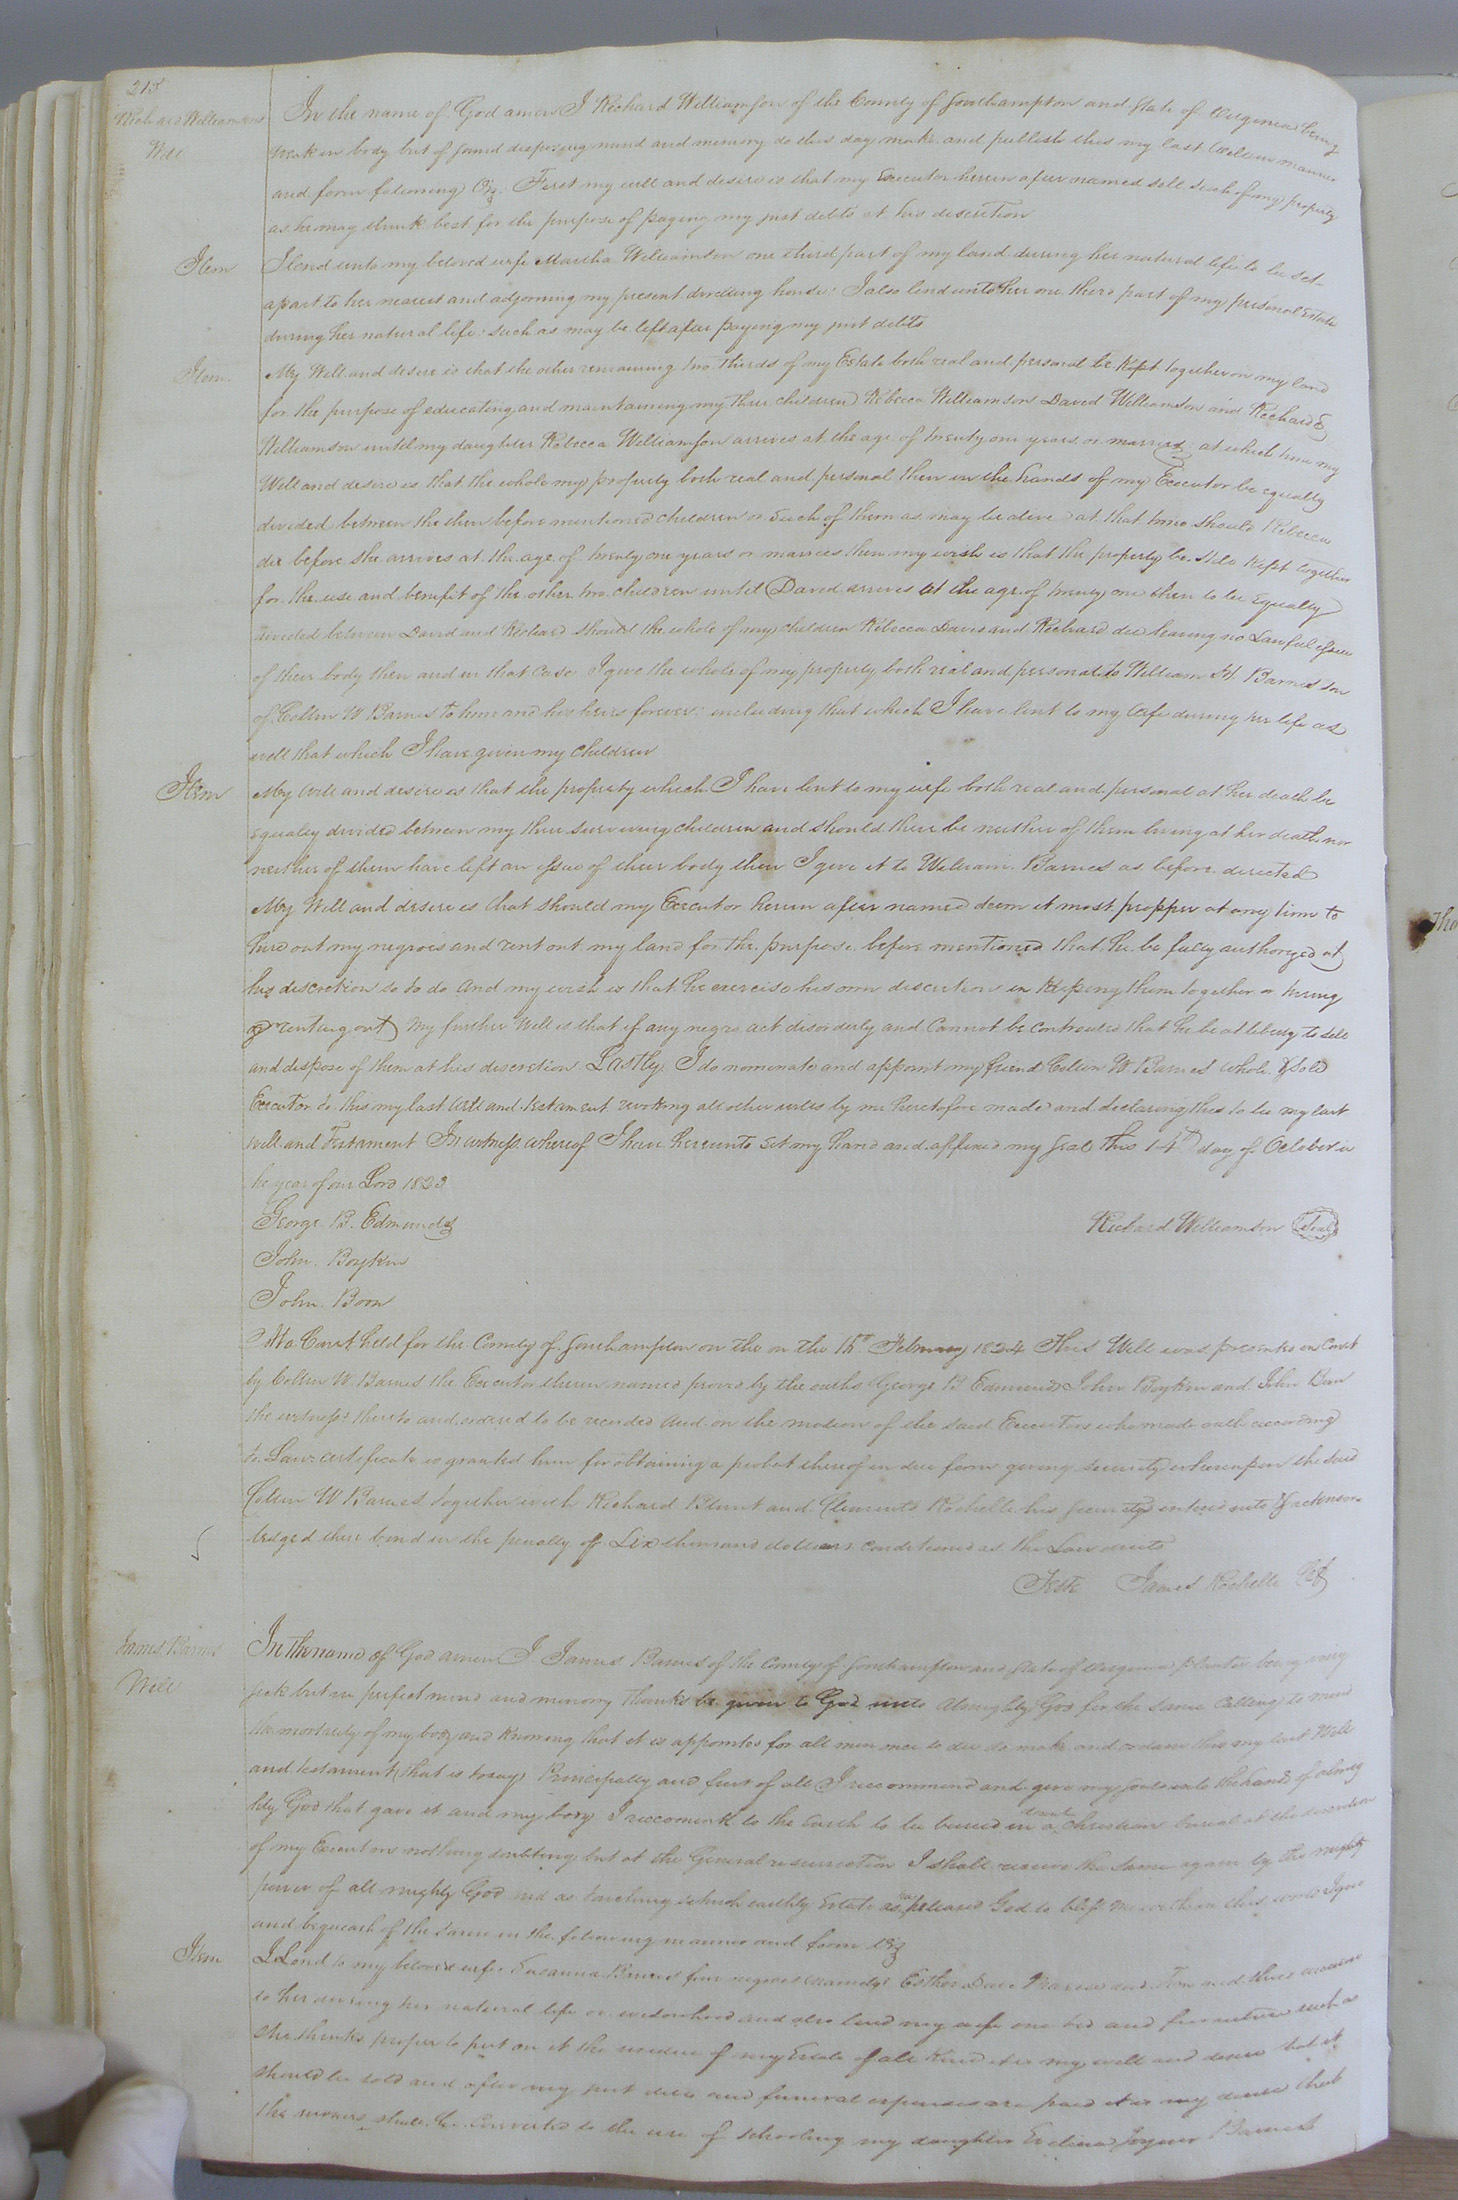 218
Richard Williamsons
Will
In the name of God amen I Richard Williamson of the County of Southampton and State of Virginia being
weak in body but of sound disposing mind and memory do this day make and publish this my last Will in manner
and form following Viz. First my will and desire is that my Executor herein after named sell such of my property
as he may think best for the purpose of paying my just debts at his discretion
Item
I lend unto my beloved wife Martha Williamson one third part of my land during her natural life to be set
apart to her nearest and adjoining my present dwelling house: I also lend unto her one third part of my personal Estate
during her natural life: such as may be left after paying my just debts
Item
My Will and desire is that the other remaining two thirds of my Estate both real and personal be kept together on my land
for the purpose of educating and maintaining my three children Rebecca Williamson David Williamson and Richard
Williamson until my daughter Rebecca Williamson arrives at the age of twenty one years or married at which time my
Will and desire is that the whole my property both real and personal then in the hands of my Executor be equally
divided between the then before mentioned children or such of them as may be alive at that time should Rebecca
die before she arrives at the age of twenty one years or marries then my wish is that the property be still kept together
for the use and benefit of the other two children until David arrives at the age of twenty one then to be Equally
divided between David and Richard should the whole of my children Rebecca David and Richard die leaving no Lawful issue
of their body then and in that case I give the whole of my property both real and personal to William H Barnes son
of Collin W Barnes to him and his heirs forever: including that which I have lent to my Wife during her life as
well that which I have given my children
Item
My Will and desire is that the property which I have lent to my wife both real and personal at her death be
equaley divided between my three surviving children and should there be neither of them living at her death nor
neither of them have left an issue of their body then I give it to William Barnes as before directed
My Will and desire is that should my Executor herein after named deem it most propper at any time to
hire out my negroes and rent out my land for the purpose before mentioned that he be fully authorized at
his discretion so to do and my wish is that he exercise his own discretion in keeping them together or hiring
& renting out My further Will is that if any negro act disorderly and cannot be controuled that he be at liberty to sell
and dispose of them at his discretion Lastly I do nominate and appoint my friend Collin W Barnes whole & sole
Executor to this my last Will and testament revoking all other wills by me heretofore made and declaring this to be my last
will and Testament In witness whereof I have hereunto set my hand and affixed my seal this 14th day of October in
he year of our Lord 1823
George B. Edmunds
Richard Williamson Seal
John Boykin
John Boon
At a Court held for the County of Southampton on the on the 15th February 1824 This Will was presented in Court
by Collin W Barnes the Executor therein named proved by the oaths George B Edmunds John Boykin and John Boon
the witness thereto and ordered to be recorded and on the motion of the said Executors who made oath according
to Law certificate is granted him for obtaining a probat thereof in due form giving security whereupon the said
Collin W Barnes together with Richard Blunt and Clements Rochelle his securitys entered into & acknow-
ledged their bond in the penalty of Six thousand dollars conditioned as the Law directs
Teste James Rochelle
James Barnes
Will
In the name of God amen I James Barnes of the County of Southampton and State of Virginia planter being very
sick but in perfect mind and memory thanks be given to God unto Almighty God for the same Calling to mind
the mortality of my body and knowing that it is appointed for all men once to die do make and ordain this my last Will
and testament (that is to say) Principally and first of all I recommend and give my soul unto the hand of almig
hty God that gave it and my body I reccomend to the earth to be buried in a decent christian burial at the discretion
of my Executors nothing doubting but at the General resurrection I shall receive the same again by the mighty
power of all mighty God and as touching such earthly Estate as has pleased God to bless me with in this world I give
and bequeath of the same in the following manner and form Viz
Item
I Lend to my beloved wife Susanna Barnes four negroes namely Esther and Tom and three
to her during her natural life or widowhood and also lend my wife one bed and furniture such as
she thinks proper to put on it the residue of my Estate of all kind it is my will and desire that it
should be sold and after my just debts and funeral expenses are paid it is my desire that
the money shall be converted to the use of schooling my daughter Evelina Joyner Barnes
Tho